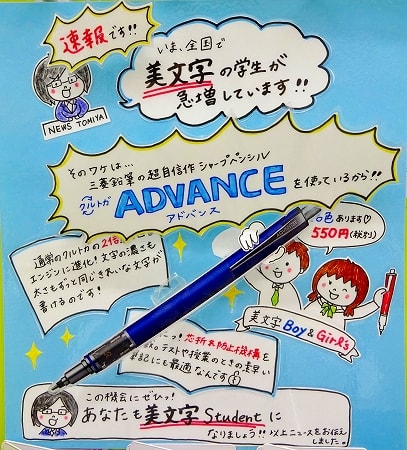 速報です!!
NEWS TOMIYA
いま、全国で
美文字の学生が
急増しています!!
そのワケは…
三菱鉛筆の超自信作シャープペンシル
クルトガ
ADVANCEを使っているから!!
アドバンス
色あります♡
550円(税別)
通常のクルトガの2倍
エンジンに進化!文字の濃さも
太さもずっと同じきれいな文字が
書けるのです!
美文字 Boy & Girl's
芯折れ防止機構を
テストや授業のときの素早い
記にも最適なんです
この機会にぜひッ!
あなたも美文字Studentに
なりましょう!!以上ニュースをお伝え
しました。